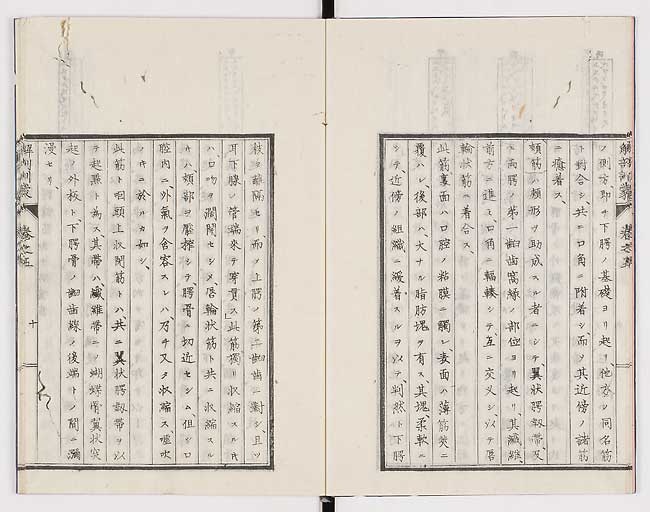 ノ側方、即チ下腭ノ基礎ヨリ起リ他方ノ同名筋
ト對合シ、共ニ口角ニ附着シ、而ソ其近傍ノ諸筋
ニ癒着ス、
頬筋ハ頬形ヲ助成スル者ニシテ翼状腭靱帯及
ヒ両腭ノ第一齨齒窩縁ノ部位ヨリ起リ、其纖維、
前方ニ進ミ、口角ニ輻輳シテ、互ニ交叉シ、以テ唇
輪状筋ニ着合ス、
此筋裏面ハ口腔ノ粘膜ニ觸レ、表面ハ薄筋筴ニ
覆ハレ後部ハ、大ナル脂肪塊ヲ有ス其塊、柔軟ニ
シテ、近傍ノ組織ニ緩着スルヲ以テ判然ト下腭
ヲ離隔セリ而ソ上腭ノ第二齨齒ニ對シ、且ツ
耳下腺ノ管端來テ穿貫ス、此筋獨リ收縮スル片
ハ口吻ヲ濶開セシメ、唇輪状筋ト共ニ收縮スル
片ハ頬部ヲ壓搾シテ腭骨ニ切近セシム、但シ口
腔内ニ、外氣ヲ含容スレハ、乃チ又タ收縮ス、嘘吹
ノ片ニ於ルカ如シ、
此筋ト咽頭上收閉筋トハ共ニ翼状腭靱帯ヲ以
テ起點ト為ス、其帯ハ纖維帯ニソ蝴蝶骨翼状突
起ノ外板ト下腭骨ノ齨齒線ノ後端トノ間ニ瀰
漫セリ、
巻之五
十